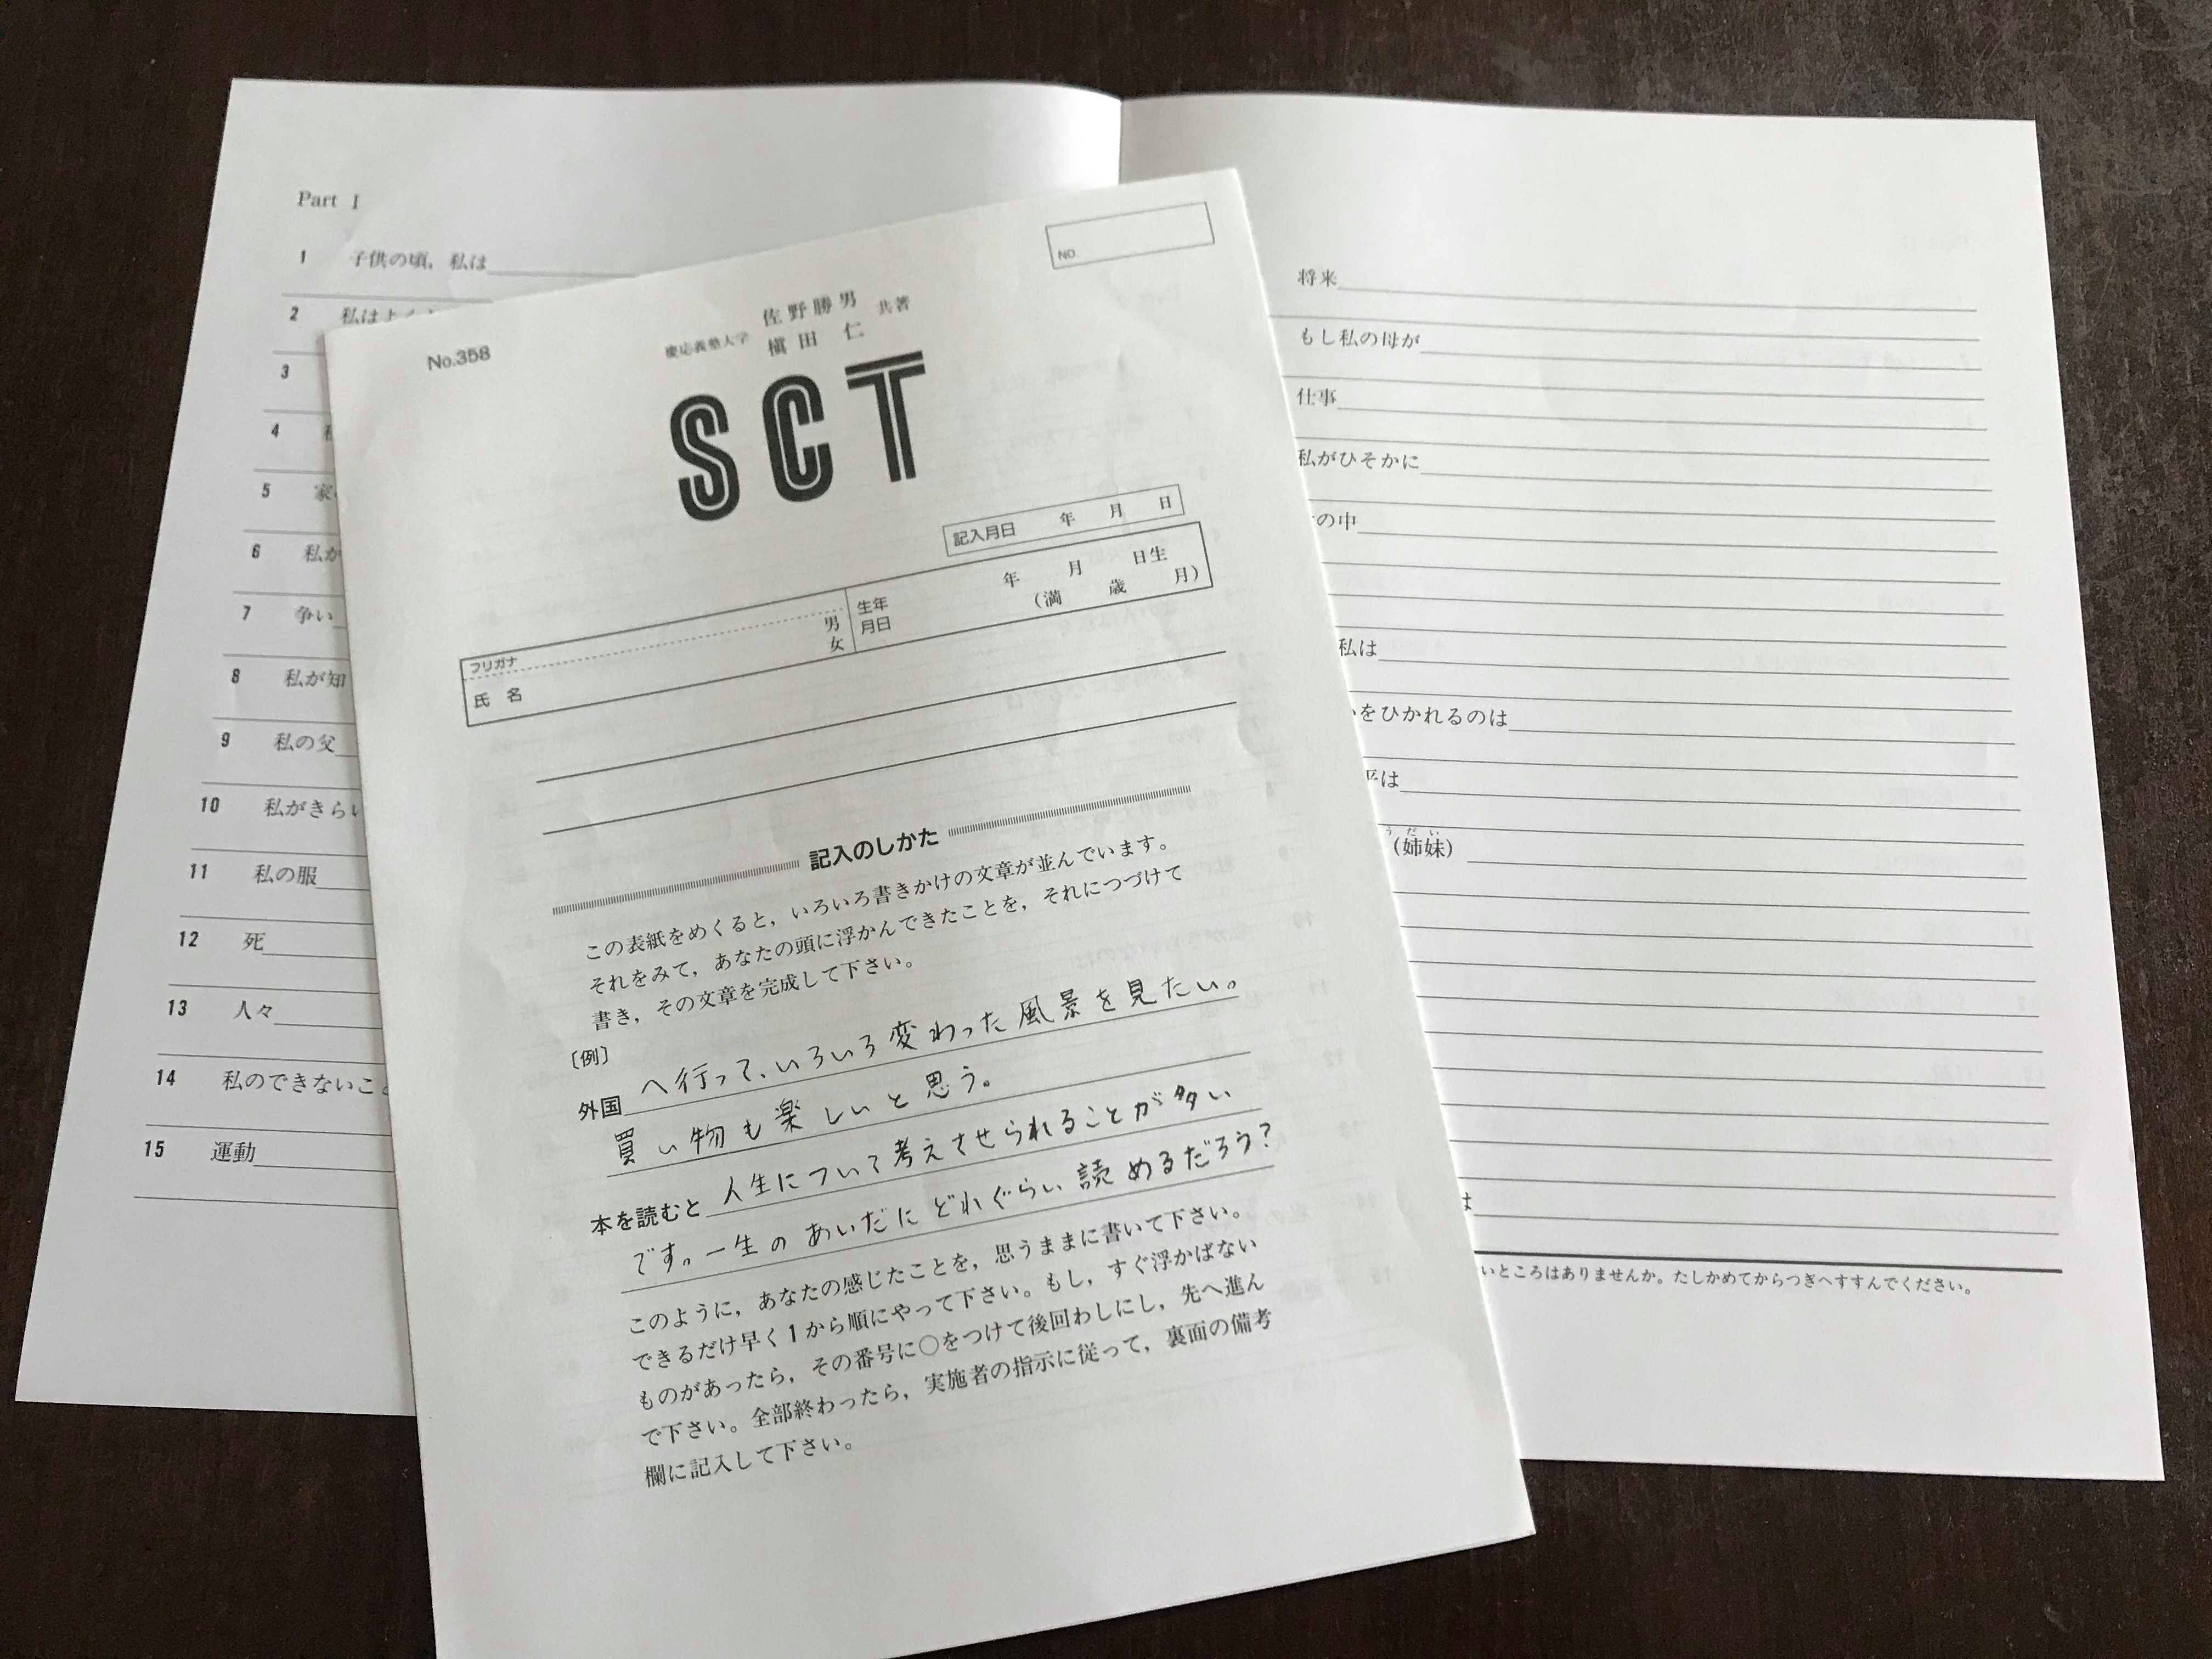 Part I
1 子供の頃，私は
2 私はよく
3
4
5 家
6 私が
7 争い
8 私が知
9 私の父
10 私がきらい
11 私の服
12 死
13 人々
14 私のできないこと
15 運動
NO
No.358
慶応義塾大学 佐野勝男 槇田 仁 共著
SCT
記入月日 年 月 日
フリガナ
氏 名
男
女
生年月日
年 月 日生
（満 歳 月）
記入のしかた
この表紙をめくると，いろいろ書きかけの文章が並んでいます。
それをみて，あなたの頭に浮かんできたことを，それにつづけて
書き，その文章を完成して下さい。
〔例〕
外国へ行って、いろいろ変わった風景を見たい。
買い物も楽しいと思う。
本を読むと人生について考えさせられることが多い
です。一生のあいだにどれぐらい読めるだろう？
このように，あなたの感じたことを，思うままに書いて下さい。
できるだけ早く1から順にやって下さい。もし，すぐ浮かばない
ものがあったら，その番号に○をつけて後回わしにし，先へ進ん
で下さい。全部終わったら，実施者の指示に従って，裏面の備考
欄に記入して下さい。
将来
もし私の母が
仕事
私がひそかに
の中
私は
をひかれるのは
は
うだい
（姉妹）
は
いところはありませんか。たしかめてからつぎへすすんでください。